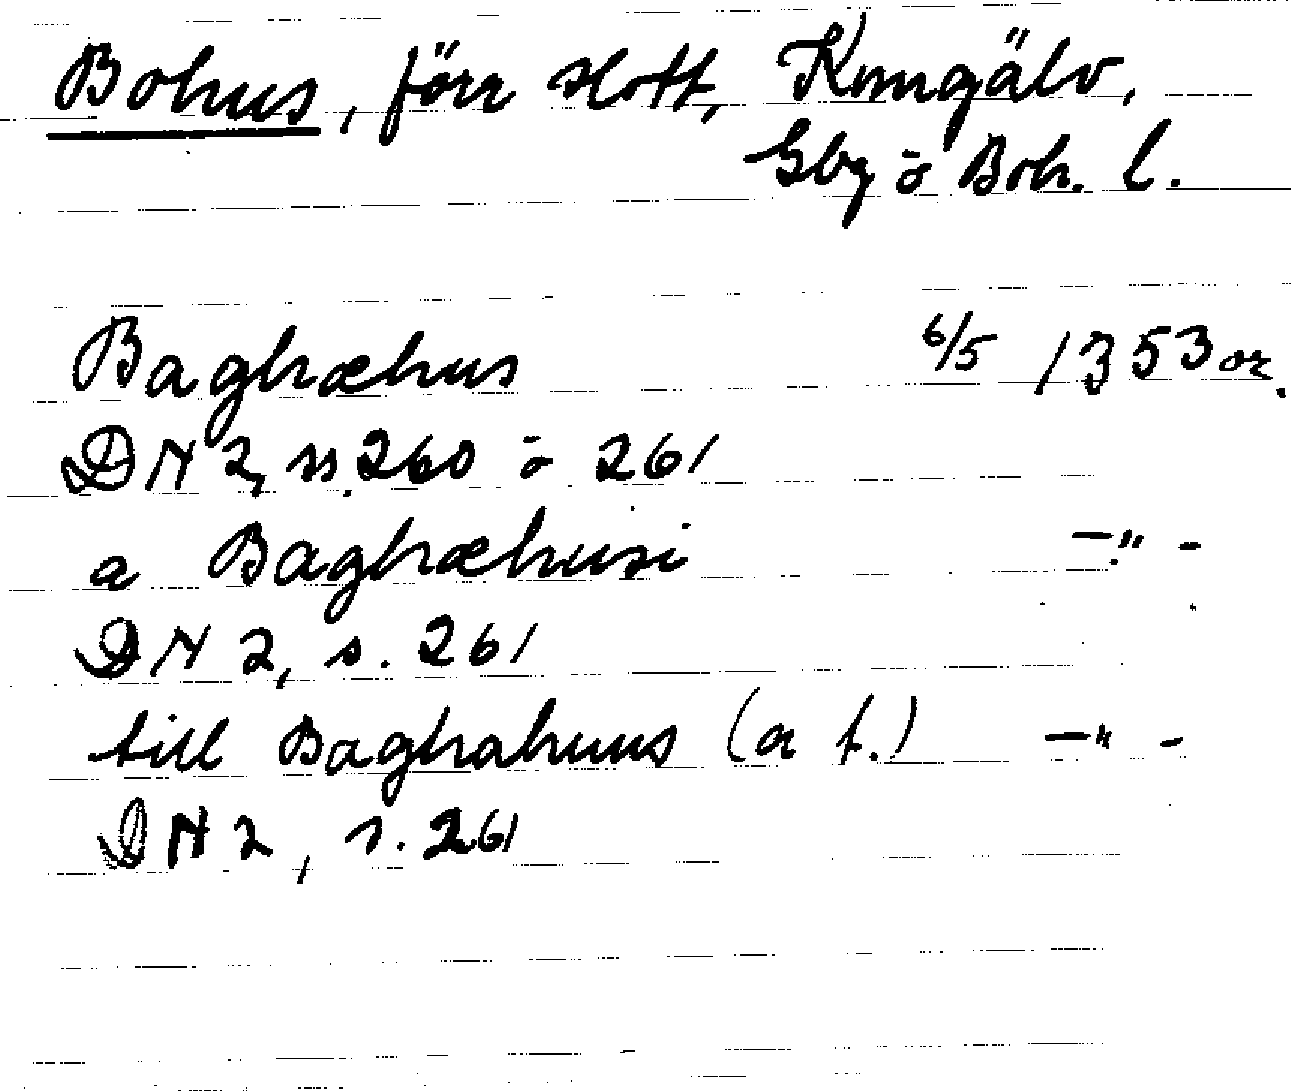 Bohus, förr slott, Kungälv,
Gbg o Boh. l.
Baghæhus 6/5 1353 or.
DN 2, ss. 260 o 261
a Baghæhusi —"-
DN 2, s. 261
till Baghahuus (a t.) —"-
DN 2, s. 261